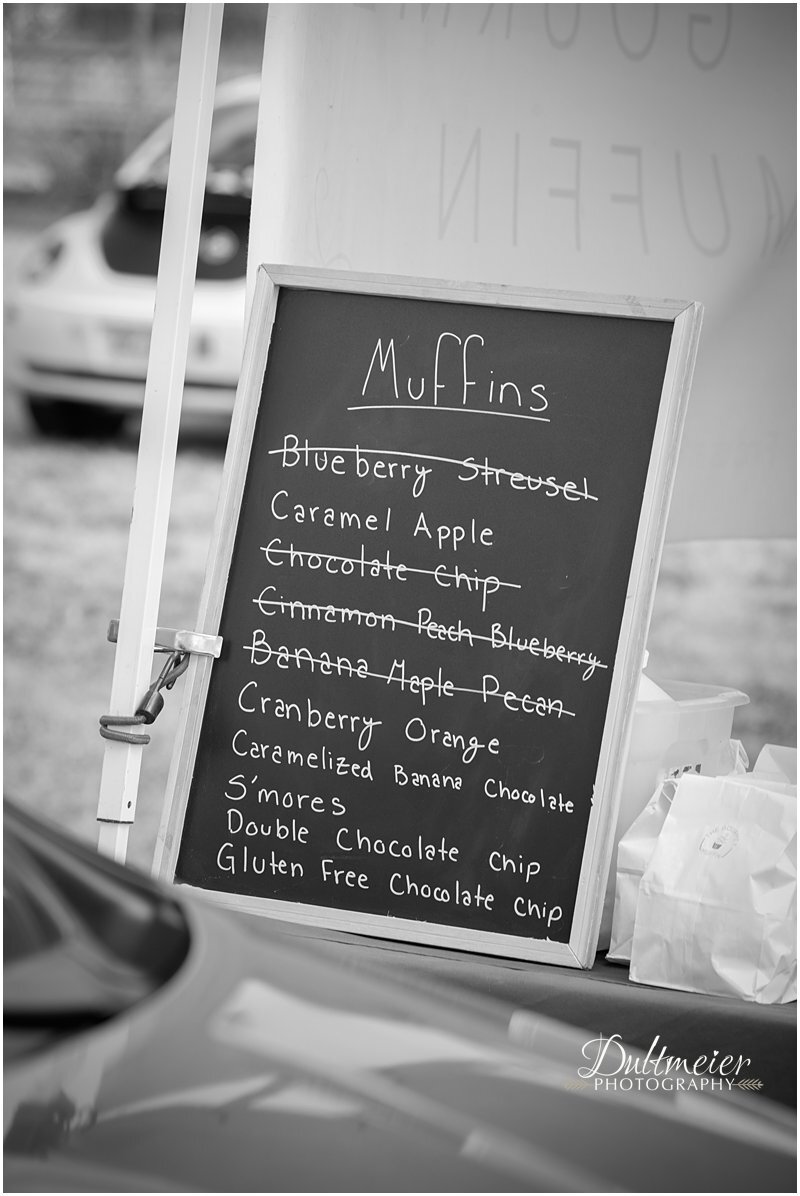 GOURME
MUFFIN
Muffins
Blueberry Streusel
Caramel Apple
Chocolate Chip
Cinnamon Peach Blueberry
Banana Maple Pecan
Cranberry Orange
Caramelized Banana Chocolate
S'mores
Double Chocolate Chip
Gluten Free Chocolate Chip
Dultmeier
PHOTOGRAPHY